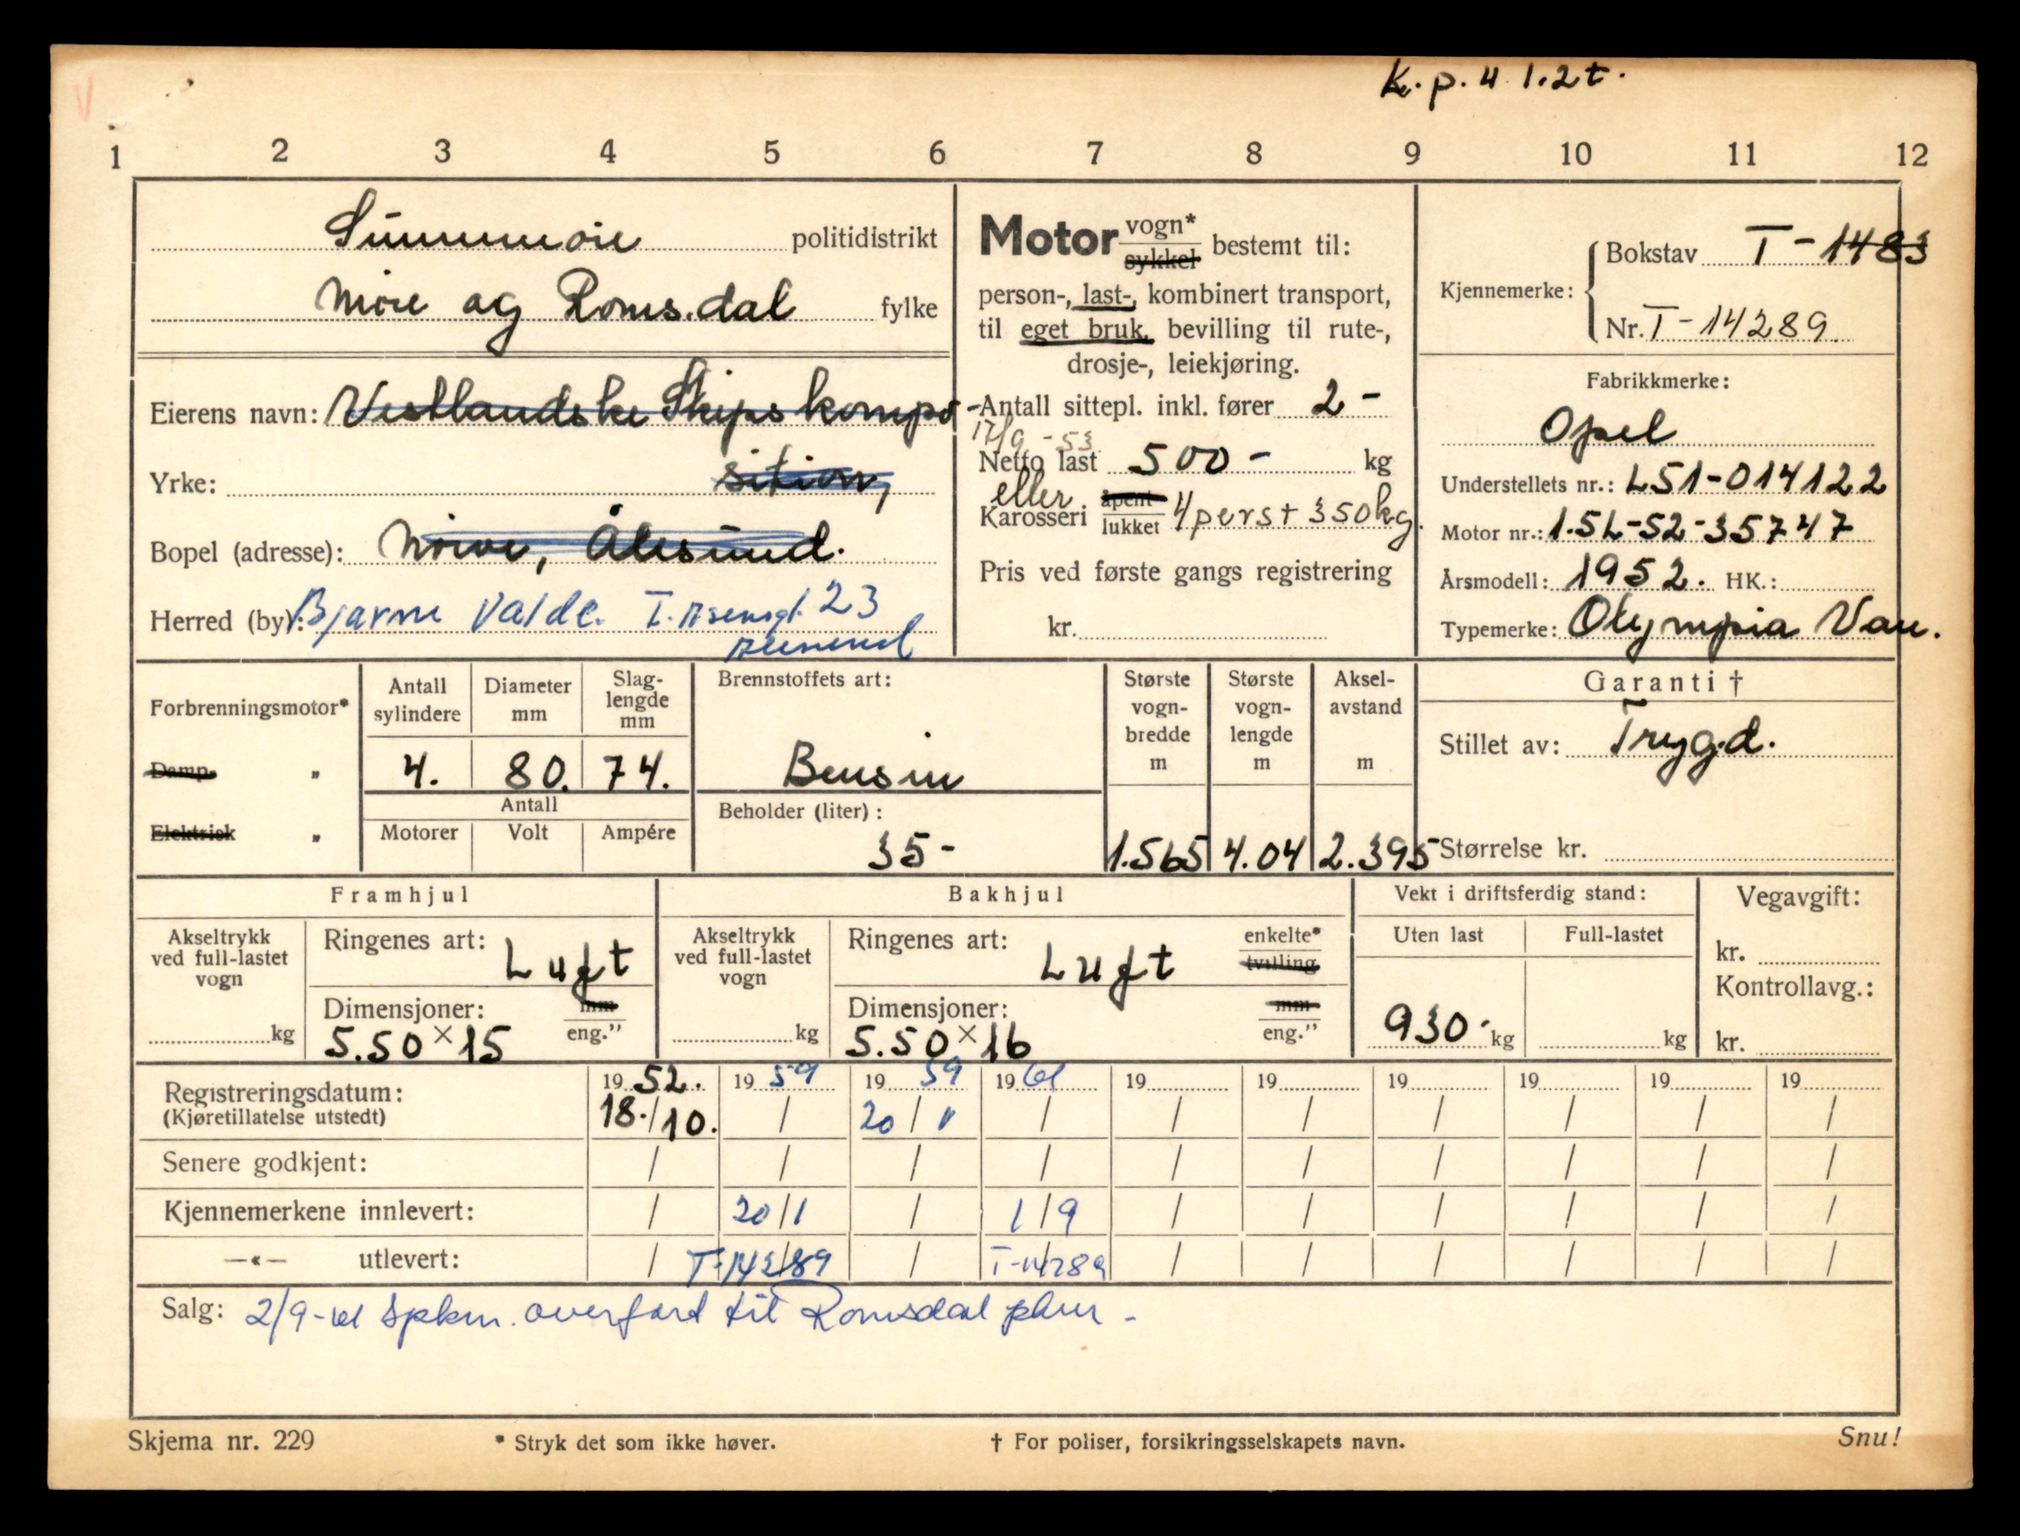 K.p. 4 1.2t.
1 2 3 4 5 6 7 8 9 10 11 12
Sunnmøre politidistrikt
Møre og Romsdal fylke
Eierens navn: Vestlandske Skipskompo-
Yrke: sition,
Bopel (adresse): Mørve, Ålesund.
Herred (by): Bjarne Valde. 23
Motor vogn* sykkel bestemt til:
person-, last-, kombinert transport,
til eget bruk, bevilling til rute-,
drosje-, leiekjøring.
Antall sittepl. inkl. fører 2-
17/9 - 53
Netto last 500- kg
eller
Karosseri åpent lukket 4 pers + 350kg.
Pris ved første gangs registrering
kr.
Kjennemerke: Bokstav T-1483
Nr. T-14289
Fabrikkmerke:
Opel
Understellets nr.: L51-014122
Motor nr.: 1.5L-52-35747
Årsmodell: 1952. HK.:
Typemerke: Olympia Van.
Forbrenningsmotor*
Damp- „
Elektrisk „
Antall sylindere
Diameter mm
Slag-lengde mm
4. 80. 74.
Antall
Motorer Volt Ampére
Brennstoffets art:
Bensin
Beholder (liter):
35-
Største vogn-bredde m
Største vogn-lengde m
Aksel-avstand m
1.565 4.04 2.395
Garanti †
Stillet av: Trygd.
Størrelse kr.
Framhjul
Akseltrykk ved full-lastet vogn
kg
Ringenes art: Luft
Dimensjoner: mm
5.50×15 eng.”
Bakhjul
Akseltrykk ved full-lastet vogn
kg
Ringenes art: Luft enkelte* tvilling
Dimensjoner: mm
5.50×16 eng.”
Vekt i driftsferdig stand:
Uten last Full-lastet
930- kg kg
Vegavgift:
kr.
Kontrollavg.:
kr.
Registreringsdatum: 1952. 1959 1959 1961 19 19 19 19 19 19
(Kjøretillatelse utstedt) 18./10. / 20/1 / / / / / / /
Senere godkjent: / / / / / / / / / /
Kjennemerkene innlevert: / 20/1 / 1/9 / / / / / /
—«— utlevert: / T-14289 / T-14289 / / / / / /
Salg: 2/9-61 spkm. overført til Romsdal pkm.-
Skjema nr. 229
* Stryk det som ikke høver.
† For poliser, forsikringsselskapets navn.
Snu!